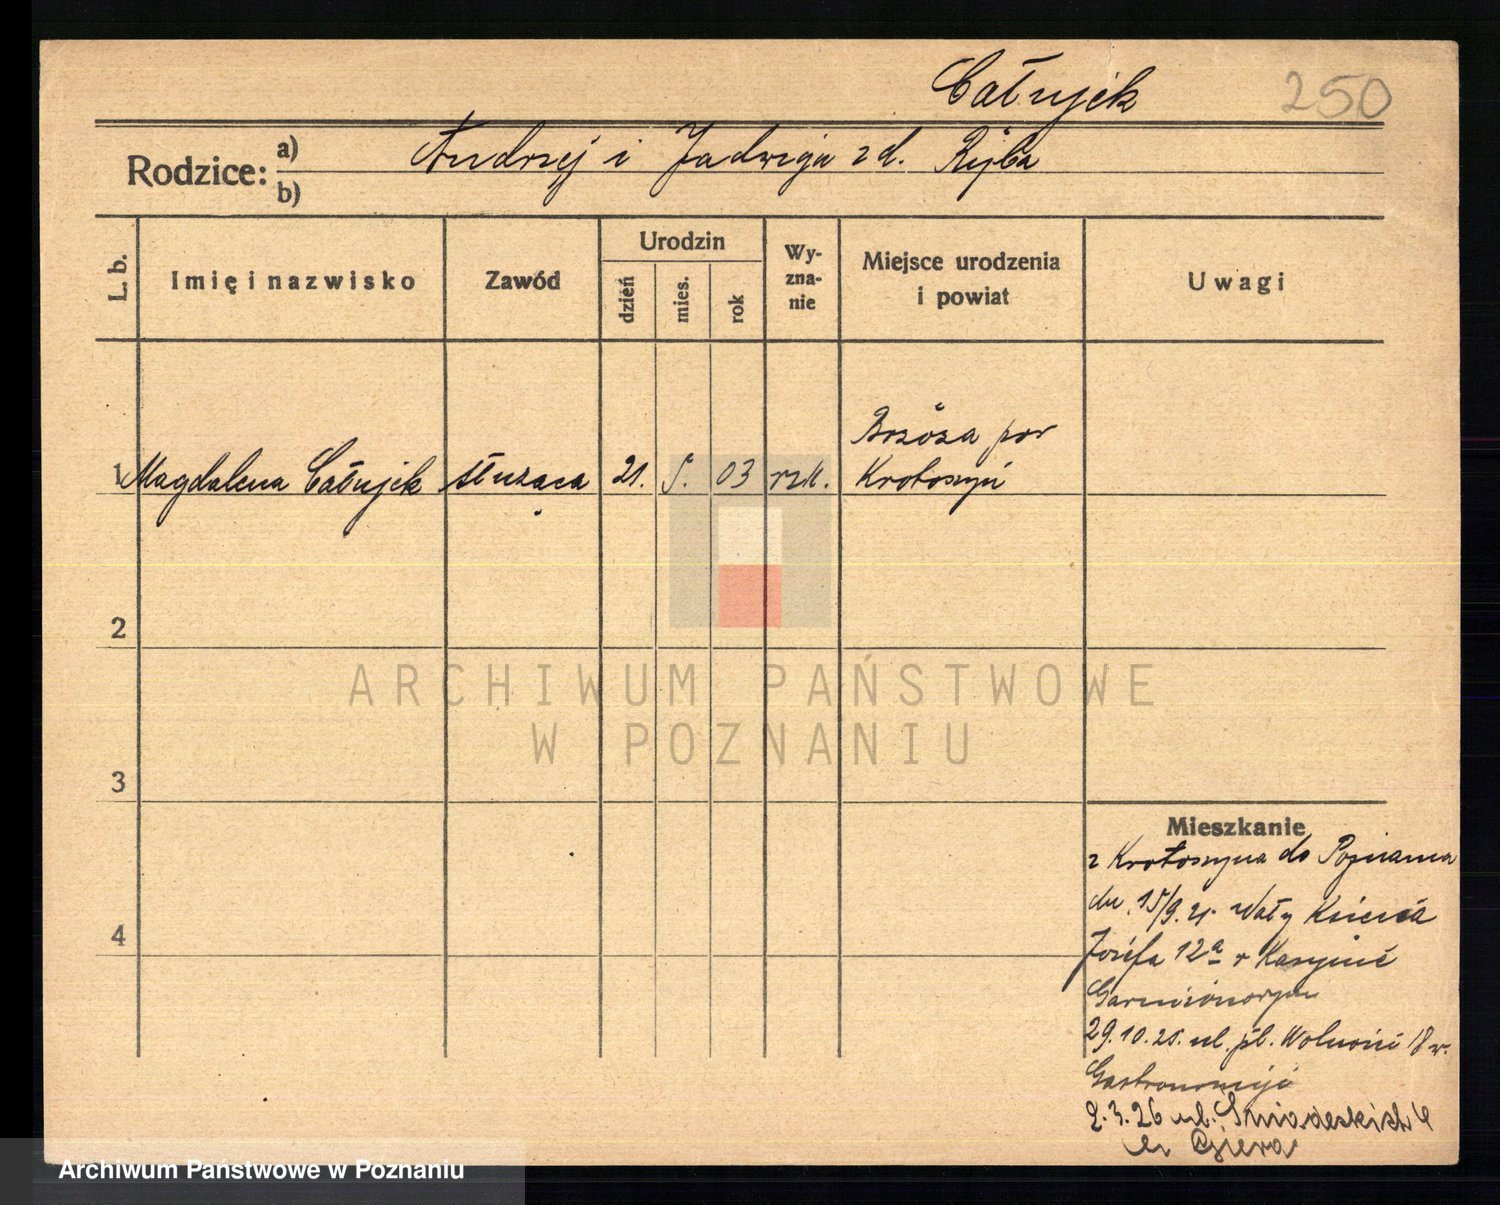 Całujek 250
Rodzice: a) Andrzej i Jadwiga z d. Ryba
b)
L. b. Imię i nazwisko Zawód Urodzin dzień mies. rok Wyznanie Miejsce urodzenia i powiat Uwagi
Brzoza pow
1 Magdalena Całujek służąca 21. 5. 03 rzk. Krotoszyn
2
ARCHIWUM PAŃSTWOWE
W POZNANIU
3
Mieszkanie
z Krotoszyna do Poznania
dn. 15/9. Wały Księcia
4
Józefa 12a w Kasynie
Garnizonowym
29.10.25. ul. pl. Wolności 18 w.
Gastronomji
2.3.26 ul. Śniadeskich 4
u Giera
Archiwum Państwowe w Poznaniu